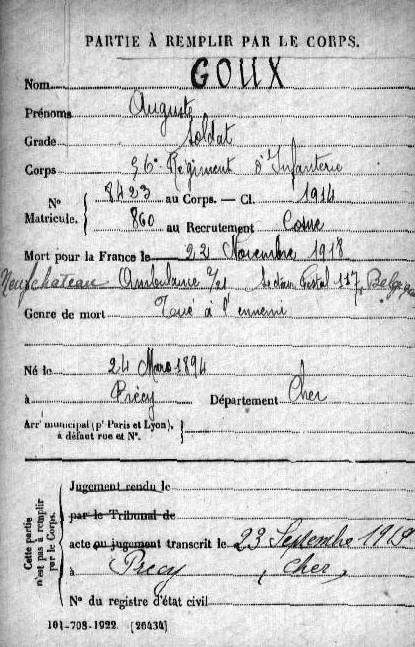 PARTIE À REMPLIR PAR LE CORPS.
Nom GOUX
Prénoms Auguste
Grade Soldat
Corps 56e Régiment d'Infanterie
N° Matricule. { 8423 au Corps. — Cl. 1914
860 au Recrutement Cosne
Mort pour la France le 22 Novembre 1918
à Neufchateau Ambulance 2/21 Secteur Postal 117, Belgique
Genre de mort Tué à l'ennemi
Né le 24 Mars 1894
à Précy Département Cher
Arrt municipal (pr Paris et Lyon), à défaut rue et N°. }
Cette partie n'est pas à remplir par le Corps.
Jugement rendu le
par le Tribunal de
acte ou jugement transcrit le 23 Septembre 1919
à Précy (Cher)
N° du registre d'état civil
101-708-1922. [26434]